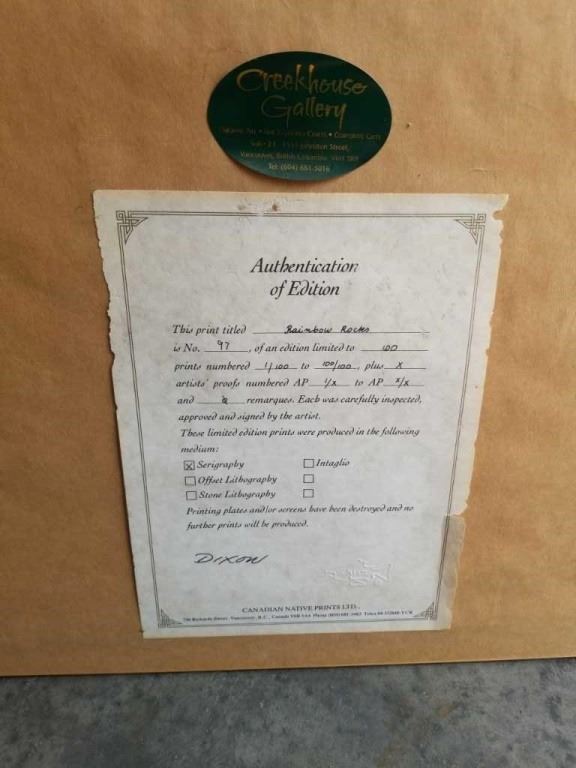 Creekhouse
Gallery
Vancouver, British Columbia
Tel: (604) 681-5016
Authentication
of Edition
This print titled Rainbow Rocks
is No. 97, of an edition limited to 100
prints numbered 1/100 to 100/100, plus X
artists' proofs numbered AP 1/x to AP x/x
and remarques. Each was carefully inspected,
approved and signed by the artist.
These limited edition prints were produced in the following
medium:
☒ Serigraphy ☐ Intaglio
☐ Offset Lithography ☐
☐ Stone Lithography ☐
Printing plates and/or screens have been destroyed and no
further prints will be produced.
Dixon
CANADIAN NATIVE PRINTS LTD.
Vancouver, B.C., Canada Phone